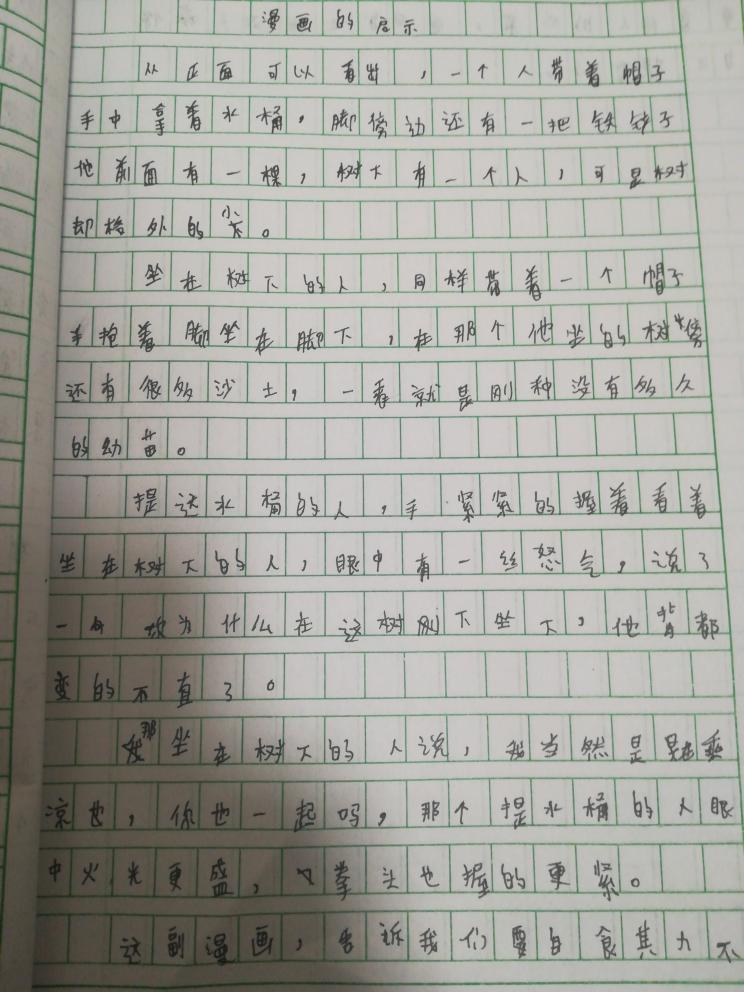 漫画的启示
从正面可以看出，一个人带着帽子
手中拿着水桶，脚傍边还有一把铁铲子
他前面有一棵，树下有一个人，可是树
却格外的小。
坐在树下的人，同样带着一个帽子
手抱着脚坐在脚下，在那个他坐的树傍
还有很多沙土，一看就是刚种没有多久
的幼苗。
提这水桶的人，手紧紧的握着看着
坐在树下的人，眼中有一丝怒气，说了
一句为什么在这树刚下坐下，他背都
变的不直了。
那坐在树下的人说，我当然是在乘
凉也，你也一起吗，那个提水桶的人眼
中火光更盛，拳头也握的更紧。
这副漫画，告诉我们要自食其力不